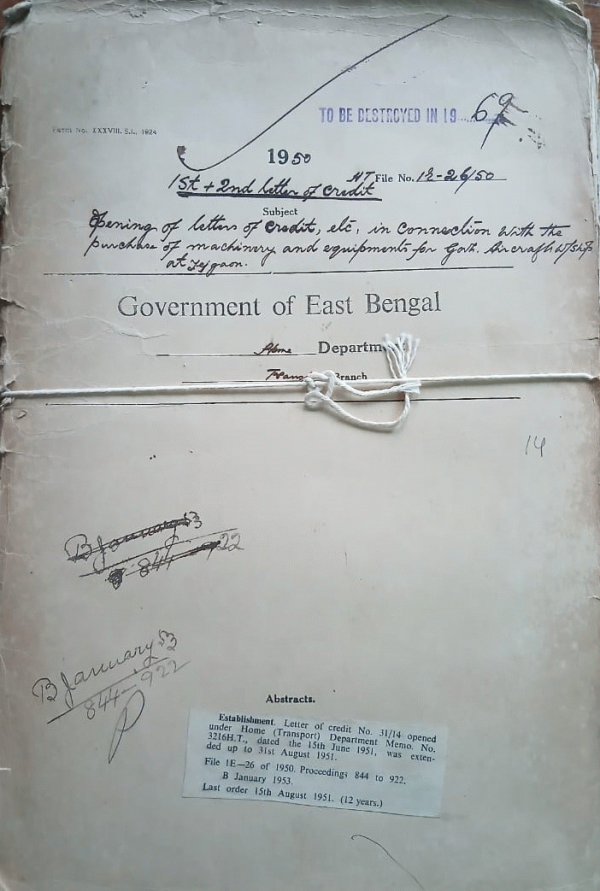 TO BE DESTROYED IN 19 69
Form No. XXXVIII. S.L. 1924
1950
1st + 2nd letter of credit
HT File No. 1E-26/50
Subject
Opening of letters of credit, etc, in connection with the
purchase of machinery and equipments for Govt. Aircraft
at Tejgaon.
Government of East Bengal
Home Department
Branch
14
B January 53
844 - 922
B January 53
844-922
Abstracts.
Establishment. Letter of credit No. 31/14 opened
under Home (Transport) Department Memo. No.
3216H.T., dated the 15th June 1951, was exten-
ded up to 31st August 1951.
File 1E—26 of 1950. Proceedings 844 to 922.
B January 1953.
Last order 15th August 1951. (12 years.)